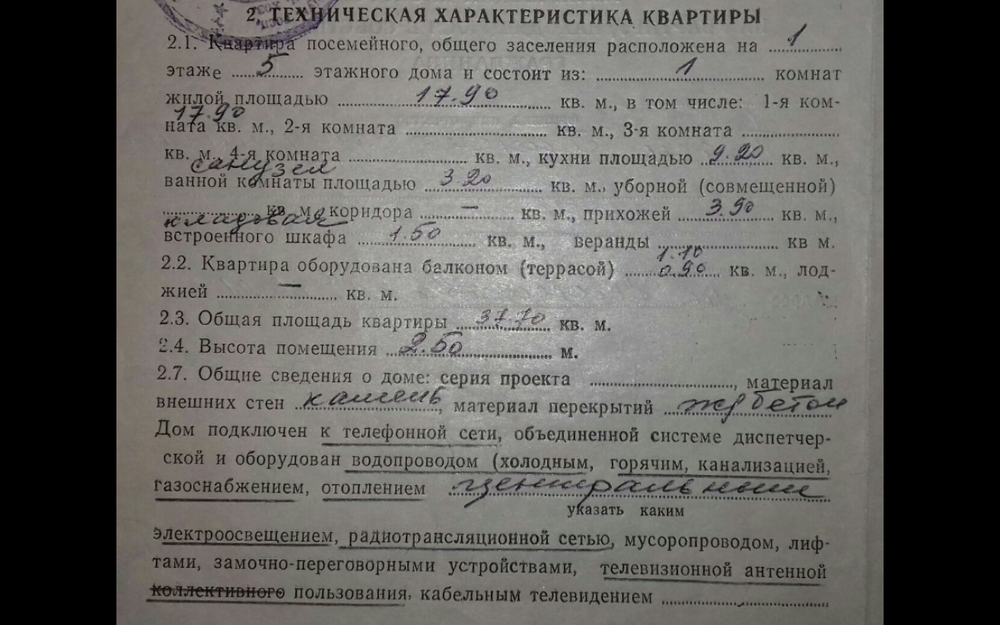 2. ТЕХНИЧЕСКАЯ ХАРАКТЕРИСТИКА КВАРТИРЫ
2.1. Квартира посемейного, общего заселения расположена на 1
этаже 5 этажного дома и состоит из: 1 комнат
жилой площадью 17.90 кв. м., в том числе: 1-я ком-
17.90
ната кв. м., 2-я комната кв. м., 3-я комната
кв. м., 4-я комната кв. м., кухни площадью 9.20 кв. м.,
санузел
ванной комнаты площадью 3.20 кв. м., уборной (совмещенной)
кв. м., коридора — кв. м., прихожей 3.90 кв. м.,
кладовая
встроенного шкафа 1.50 кв. м., веранды кв м.
1.10
2.2. Квартира оборудована балконом (террасой) 0.90 кв. м., лод-
жией — кв. м.
2.3. Общая площадь квартиры 37.70 кв. м.
2.4. Высота помещения 2.50 м.
2.7. Общие сведения о доме: серия проекта , материал
внешних стен камень, материал перекрытий ж/бетон
Дом подключен к телефонной сети, объединенной системе диспетчер-
ской и оборудован водопроводом (холодным, горячим, канализацией,
газоснабжением, отоплением центральным
указать каким
электроосвещением, радиотрансляционной сетью, мусоропроводом, лиф-
тами, замочно-переговорными устройствами, телевизионной антенной
коллективного пользования, кабельным телевидением